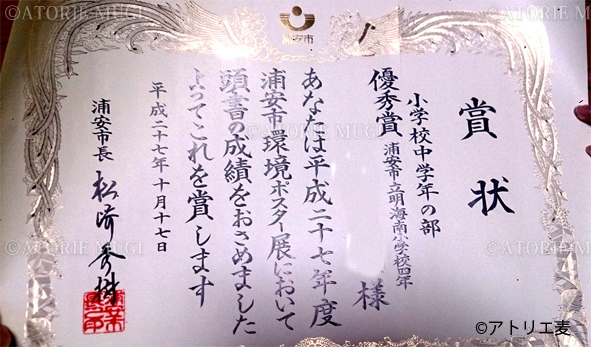 浦安市
賞状
小学校中学年の部
優秀賞 浦安市立明海南小学校四年
様
あなたは平成二十七年度
浦安市環境ポスター展において
頭書の成績をおさめました
よってこれを賞します
平成二十七年十月十七日
浦安市長 松崎秀樹
©ATORIE MUGI
©ATORIE MUGI
©ATORIE MUGI
©ATORIE MUGI
©ATORIE MUGI
©ATORIE MUGI
©アトリエ麦